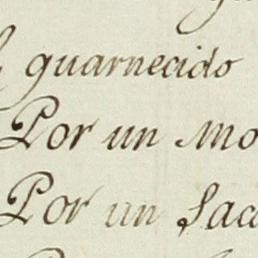 guarnecido
Por un Mo
Por un Sac